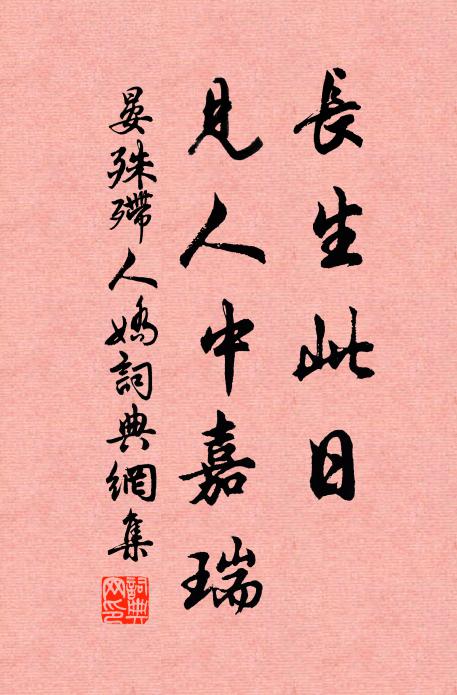 長生此日
見人中嘉瑞
晏殊殢人嬌詞典網集
詞典網印